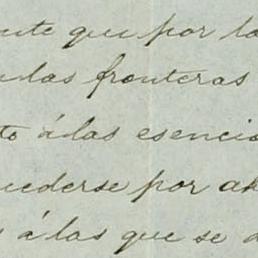 que por la
las fronteras
to á las esencia
cederse por ah
s á las que se d